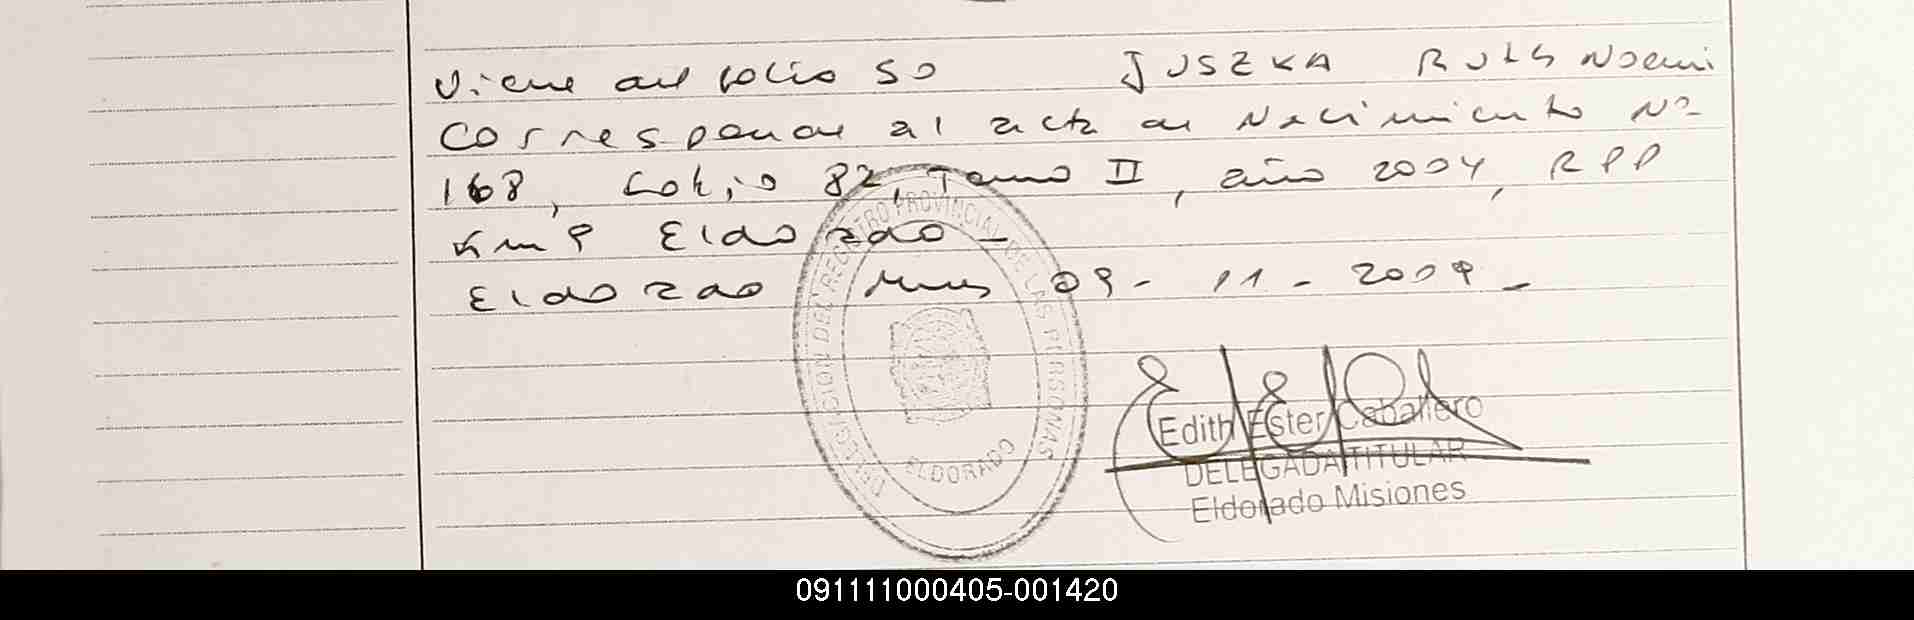 Viene del folio 50 JUSZKA RUTH Noemi
Corresponde al acta de Nacimiento Nº
168, folio 82, Tomo II, año 2004, RPP
Km 9 Eldorado -
Eldorado Mnes 09 - 11 - 2009 -
DIRECCION DEL REGISTRO PROVINCIAL DE LAS PERSONAS
ELDORADO
Edith Ester Caballero
DELEGADA TITULAR
Eldorado Misiones
091111000405-001420